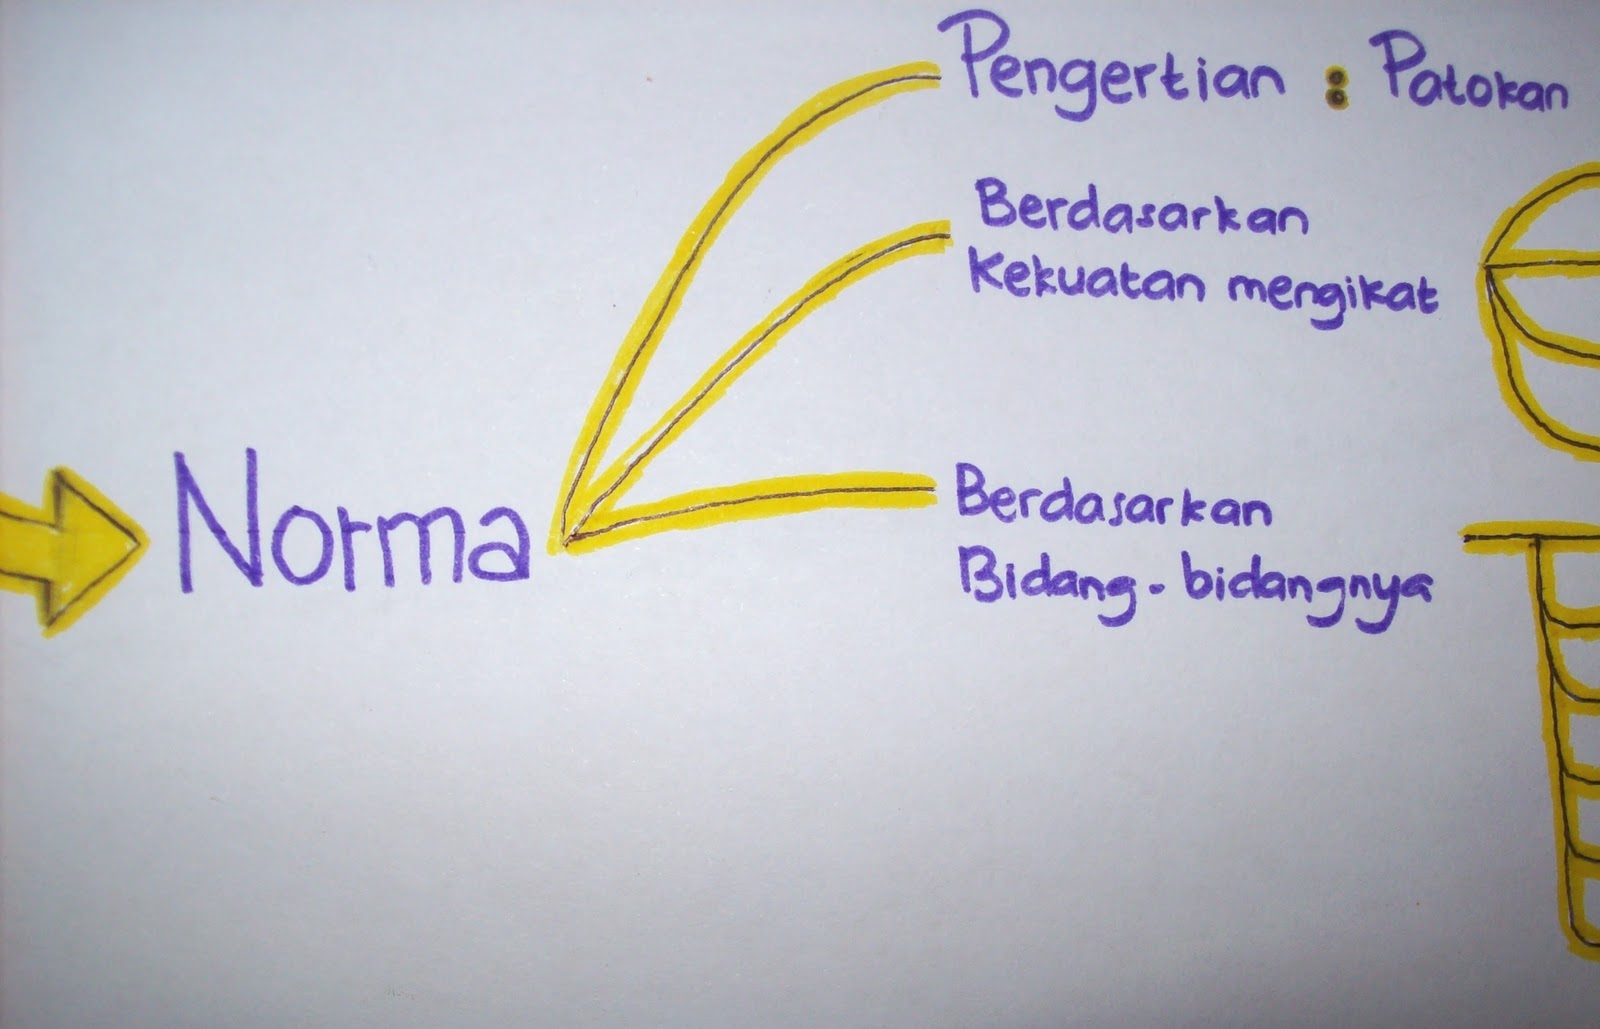 Pengertian : Patokan
Berdasarkan
Kekuatan mengikat
Norma
Berdasarkan
Bidang-bidangnya